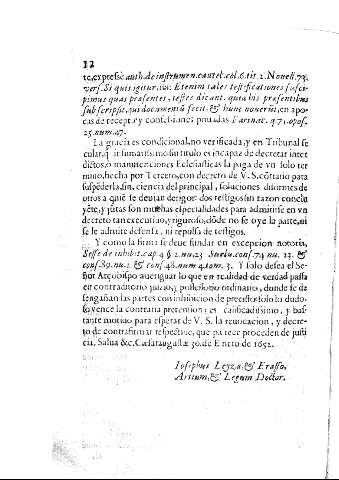 12
te, expresse auth. de instrumen. cautel. col. 6. tit. 2. Novell. 73.
vers. Si quis igitur, ibi: Etenim tales testificationes susci-
pimus quas praesentes, testes dicant. quia his presentibus
subscripsit, qui documentū fecit. & hunc noverūt, en apo-
cas de recepta, y confesiones privadas Farinac. q. 71.
25. num. 47.
La gracia es condicional, no verificada, y en Tribunal se
cular, q insumanissimo su titulo es incapaz de decretar inter
dictos, ò manutenciones Eclesiasticas la paga de vn solo ter
mino, hecha por Tercero, con decreto de V. S. cōtrario para
suspēderla, sin ciencia del principal, soluciones disformes de
otros a quiē se devian derigor dos testigos sin razon conclu
yēte, y jūtas son muchas especialidades para admitirse en vn
decreto tan executivo, y riguroso, dōde no se oye la parte, ni
se le admite defensa, ni repulsa de testigos.
Y como la firma se deve fundar en excepcion notoria,
Sesse de inhibit. cap. 4. § 2. nu. 23. Suelv. cons. 74. nu. 23. &
cons. 89. nu. 2. & cons. 48. num 4. tom. 3. Y solo desea el Se-
ñor Arçobispo averiguar lo que en realidad de verdad passa
en contraditorio juizio, y possessorio ordinario, donde se de
sengañan las partes con inhibicion de precisso solo lo dudo-
so, vence la contraria pretension: es calificadissimo, y bas-
tante motivo para esperar de V. S. la revocacion, y decre-
to de contrafirmar respective, que parece proceden de justi
cia, Salva &c. Caesaraugustae 30. de Enero de 1652.
Iosephus Leyza, & Erasso,
Artium, & Legum Doctor.